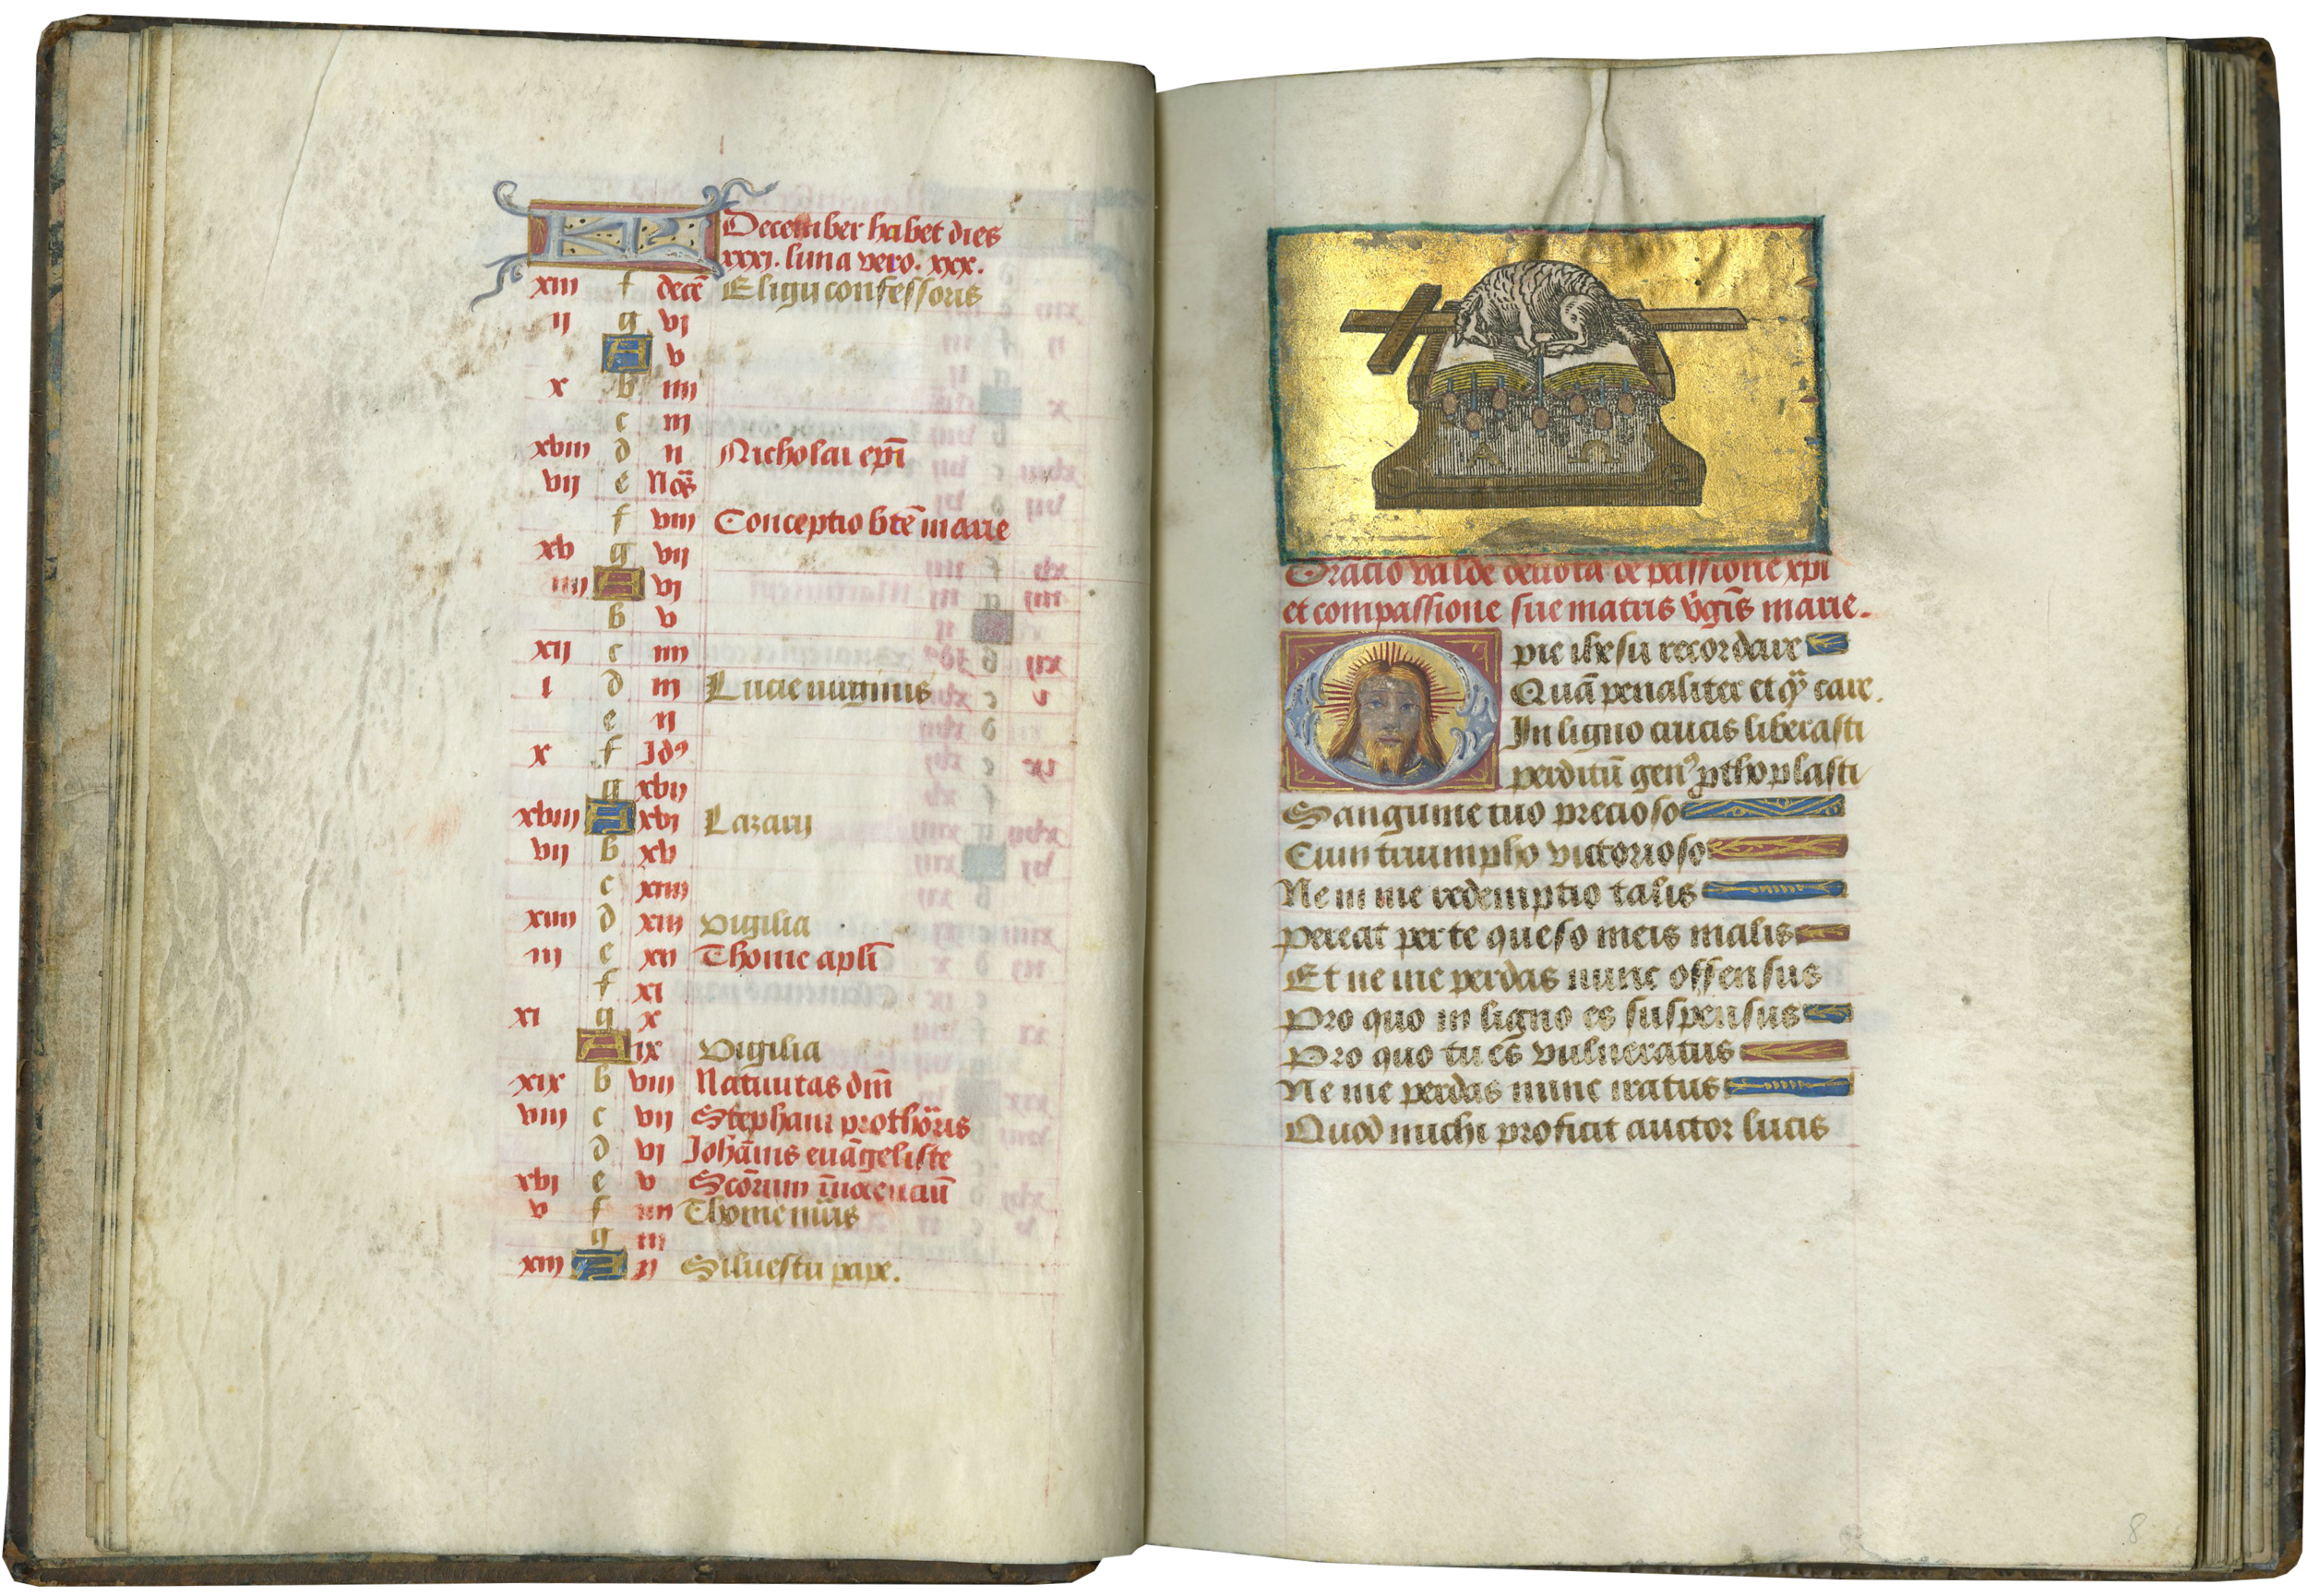 KL December habet dies
xxxj. luna vero. xxx.
xiii f decē Eligii confessoris
ij g vj
A v
x b iiij
c iij
xviii d ii Nicholai epī
vij e Noñ
f viii Conceptio btē marie
xv g vij
iiij A vj
b v
xij c iiij
i d iij Lucie virginis
e ij
x f Idꝰ
g xvij
xviii A xvj Lazarij
vij b xv
c xiiij
xiiij d xiij vigilia
iij e xij Thome apłi
f xi
xi g x
A ix vigilia
xix b viii Natiuitas dm̄
viii c vij Stephani prothom̄ris
d vj Johānis euāgeliste
xvj e v Scōrum īnocenciū
v f iiij Thome m̄ris
g iij
xiij A ij Siluestri pape.
Oracio valde deuota de passione xpi
et compassione sue matris v̄gīs marie.
O pie ihesu recordare
Quā penaliter et qͣ care.
In ligno crucis liberasti
perditū genꝰ ꝓthoplasti
Sanguine tuo precioso
Cum triumpho victorioso
Ne in me redemptio talis
pereat per te queso meis malis
Et ne me perdas nunc offensus
Pro quo in ligno es suspensus
Pro quo tu es vulneratus
Ne me perdas nunc iratus
Quod michi proficit auctor lucis
8